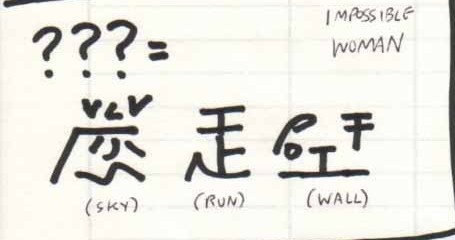 IMPOSSIBLE
WOMAN
???=
(SKY) (RUN) (WALL)